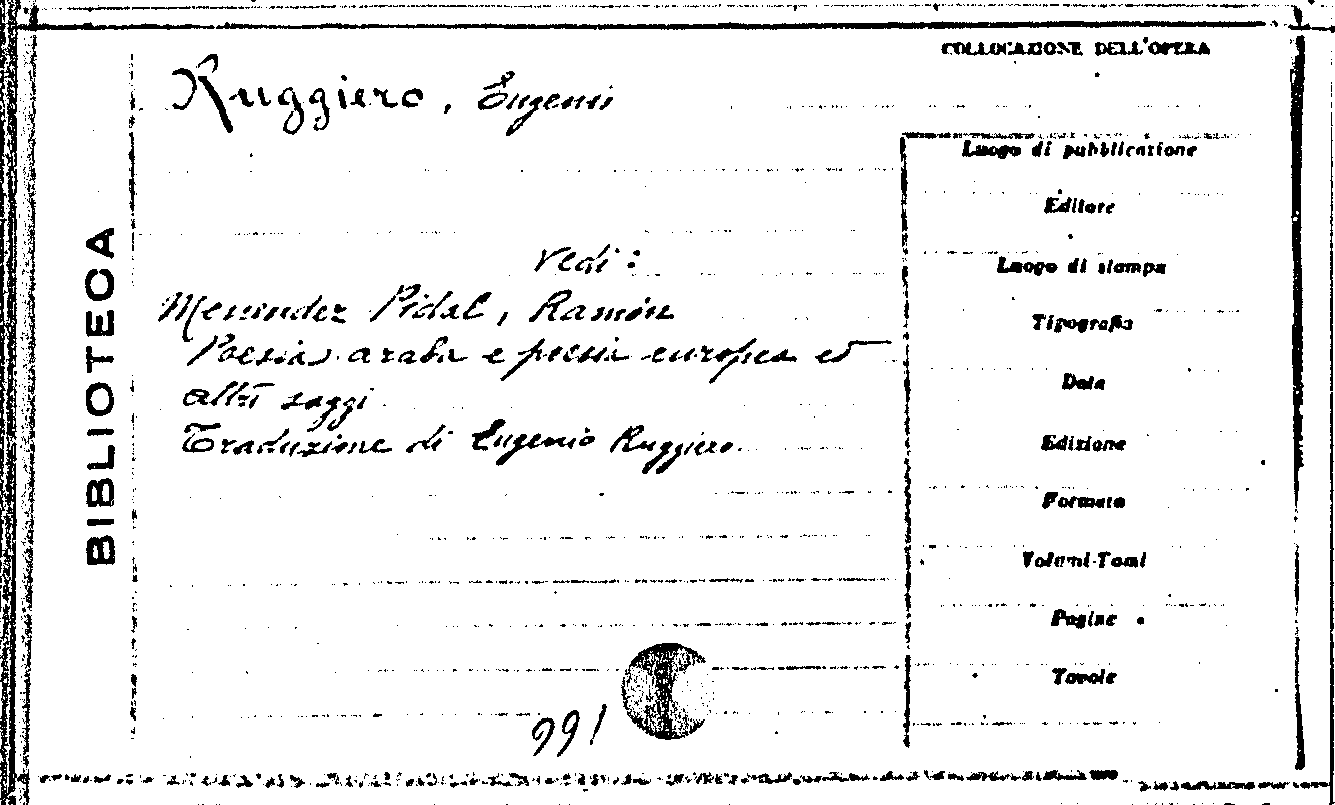 COLLOCAZIONE DELL'OPERA
Ruggiero, Eugenio
vedi:
Menendez Pidal, Ramón
Poesia araba e poesia europea ed
altri saggi
Traduzione di Eugenio Ruggiero.
991
BIBLIOTECA
Luogo di pubblicazione
Editore
Luogo di stampa
Tipografia
Data
Edizione
Formato
Volumi-Tomi
Pagine
Tavole